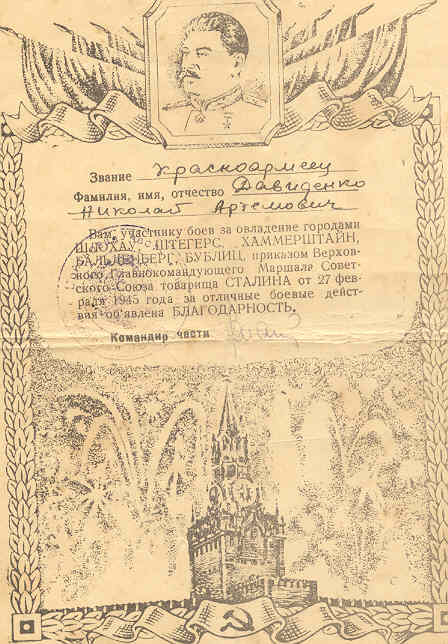 Звание Красноармеец
Фамилия, имя, отчество Давиденко
Николай Артемович
Вам, участнику боев за овладение городами
ШЛОХАУ, ШТЕГЕРС, ХАММЕРШТАЙН,
БАЛЬДЕНБЕРГ, БУБЛИЦ, приказом Верхов-
ного Главнокомандующего Маршала Совет-
ского Союза товарища СТАЛИНА от 27 фев-
раля 1945 года за отличные боевые дейст-
вия об'явлена БЛАГОДАРНОСТЬ.
Командир части